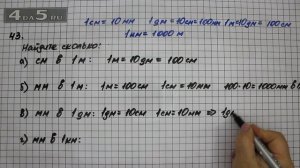 4DA5.RU
1см = 10мм 1дм = 10см = 100мм 1м = 10дм = 100см
1км = 1000м
43.
Найдите сколько:
а) см в 1м: 1м = 10дм = 100см
б) мм в 1м: 1м = 100см 1см = 10мм 100·10 = 1000мм в
в) мм в 1дм: 1дм = 10см 1см = 10мм ⇒ 1д
г) мм в 1км: